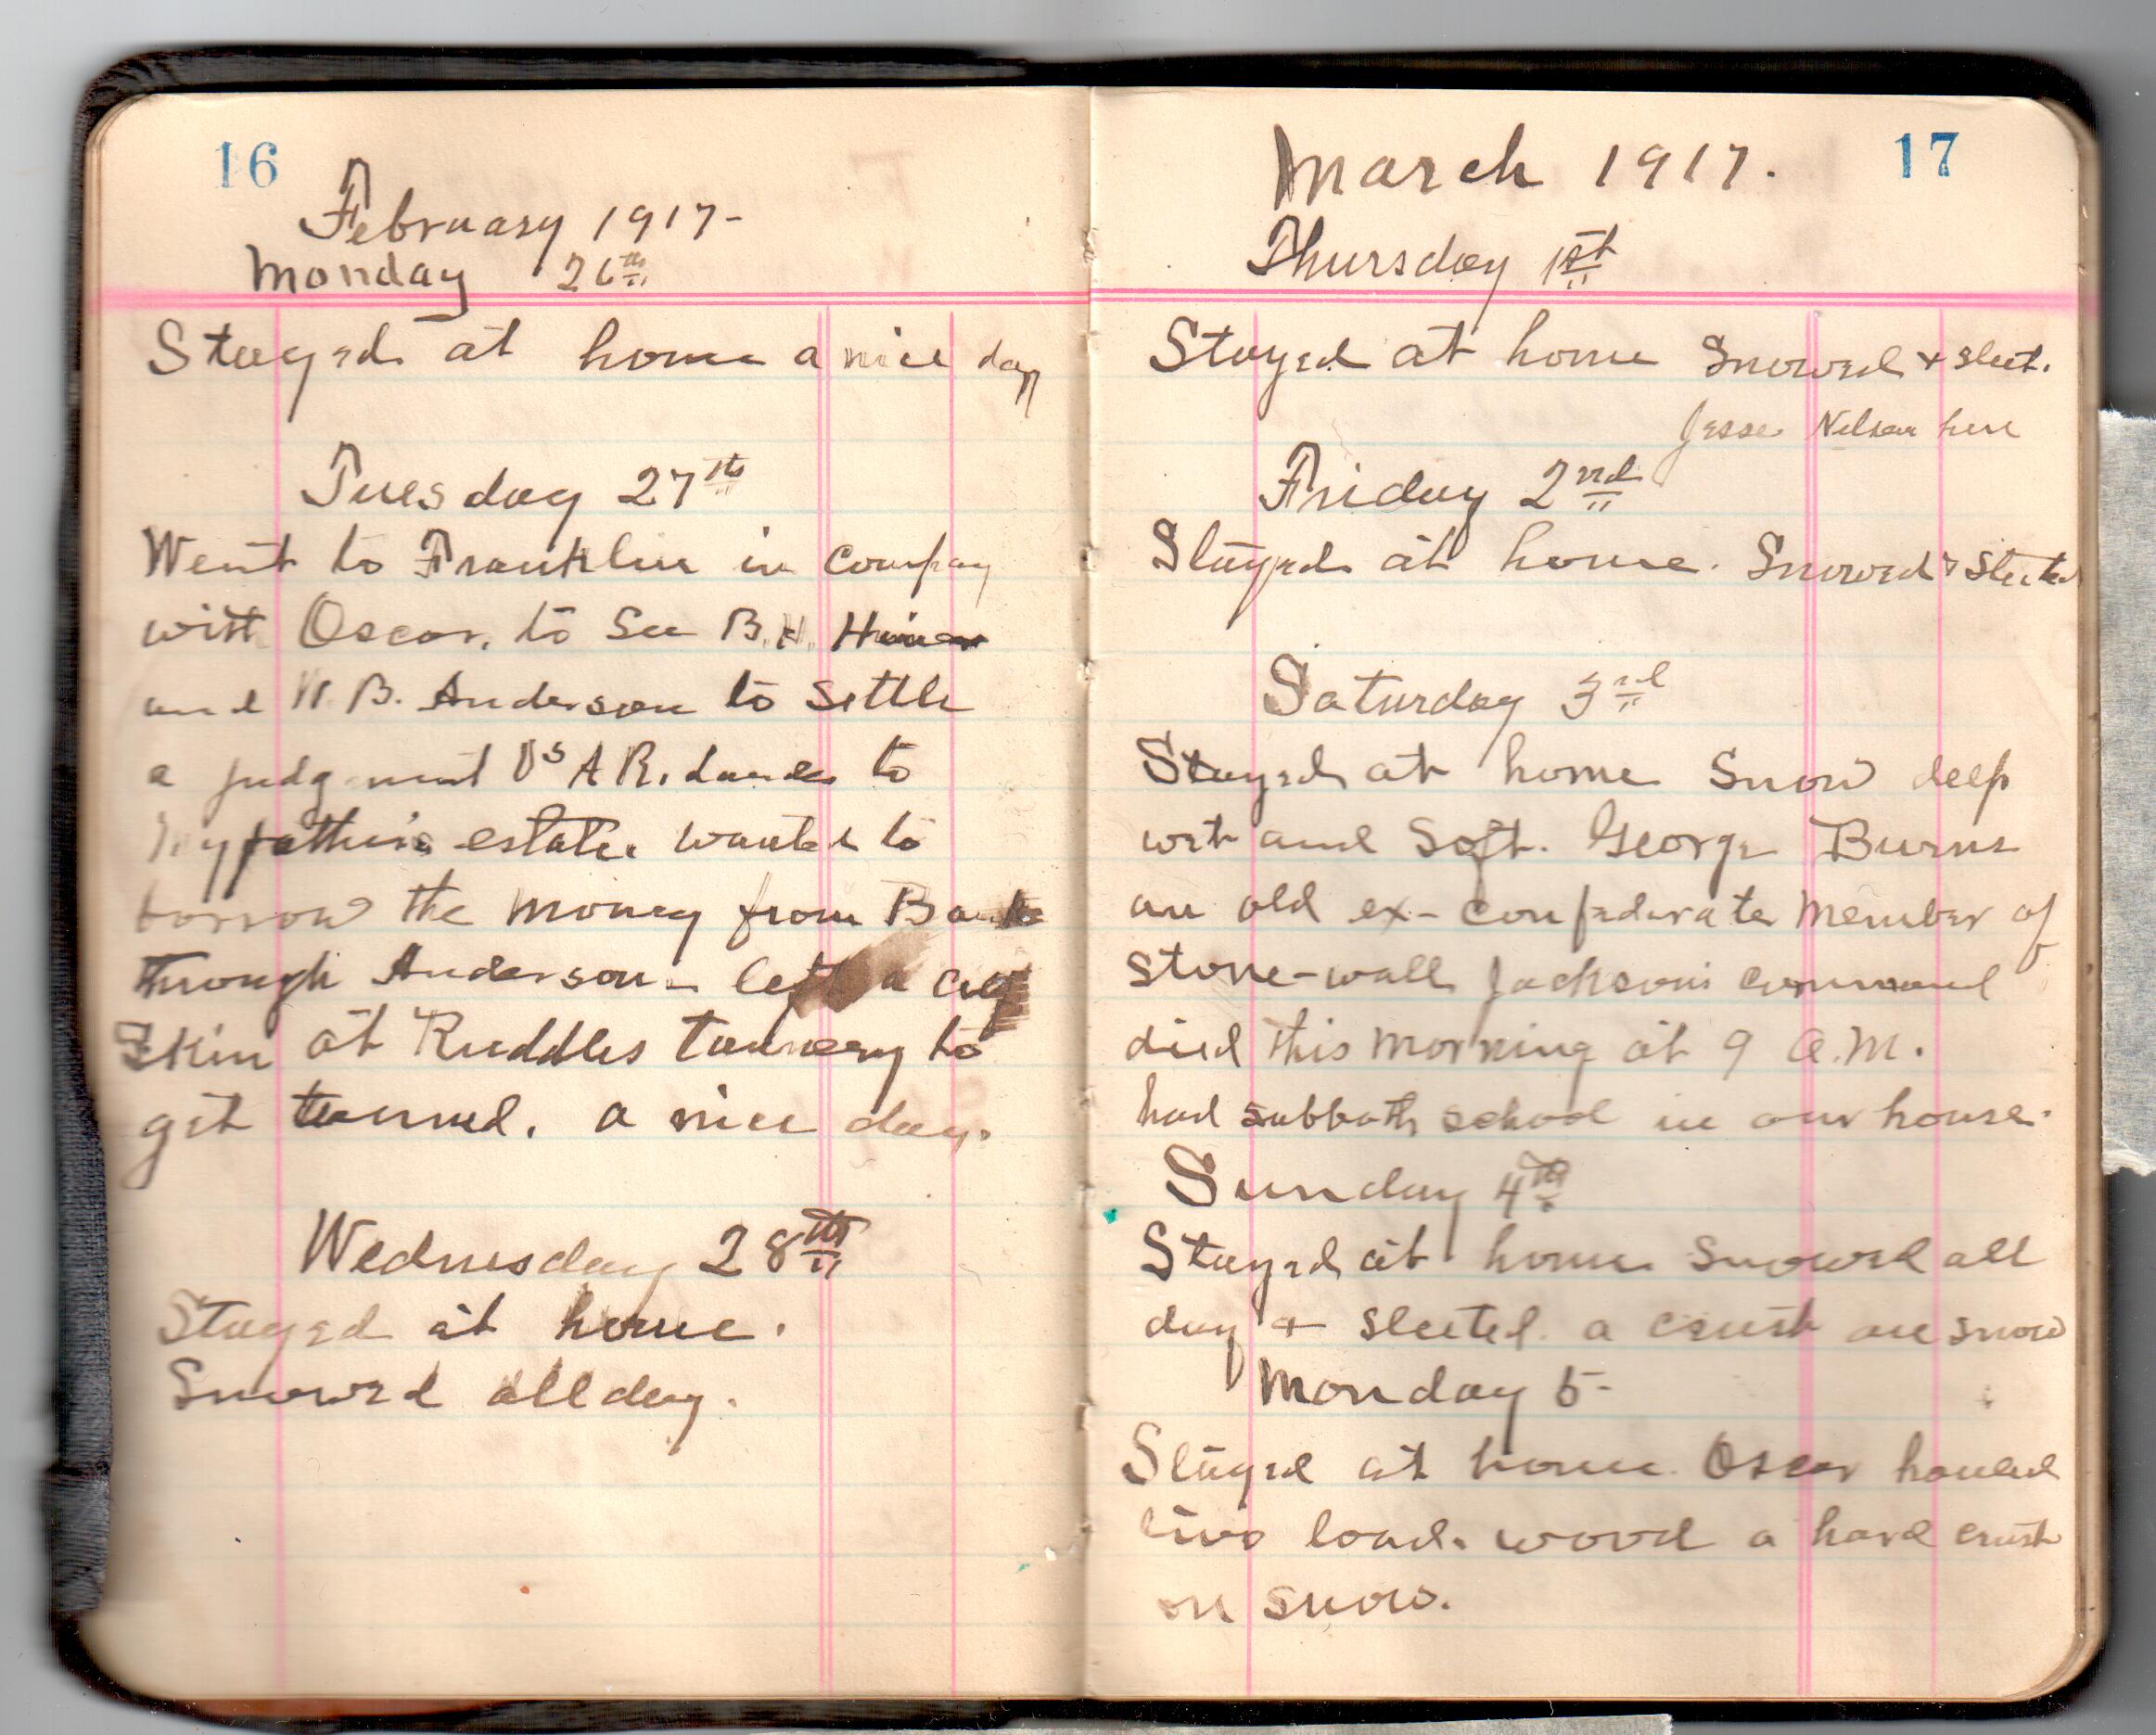 16
February 1917-
Monday 26th
Stayed at home a nice day
Tuesday 27th
Went to Franklin in Company
with Oscar, to See B.H. Hiner
and W. B. Anderson to Settle
a judgment Vs A R. to
my father's estate. wanted to
borrow the money from Bank
through Anderson - left a calf
Skin at Ruddles tannery to
get tanned. a nice day.
Wednesday 28th
Stayed at home.
Snowed all day.
17
March 1917.
Thursday 1st
Stayed at home Snowed + sleet.
Jesse Nelson here
Friday 2nd
Stayed at home. Snowed & Sleeted
Saturday 3rd
Stayed at home Snow deep
wet and Soft. George Burns
an old ex-confederate member of
Stone-wall Jackson's command
died this morning at 9 a.m.
had sabbath school in our house.
Sunday 4th
Stayed at home Snowed all
day + sleeted. a crust on snow
Monday 5-
Stayed at home. Oscar hauled
two load. wood a hard crust
on snow.